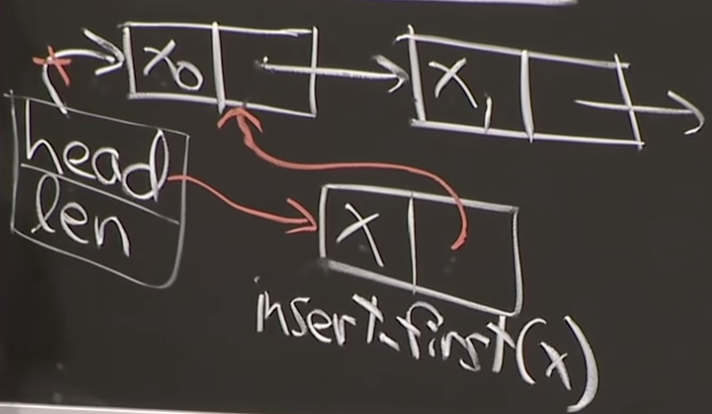 x₀
x₁
head
len
x
insert_first(x)